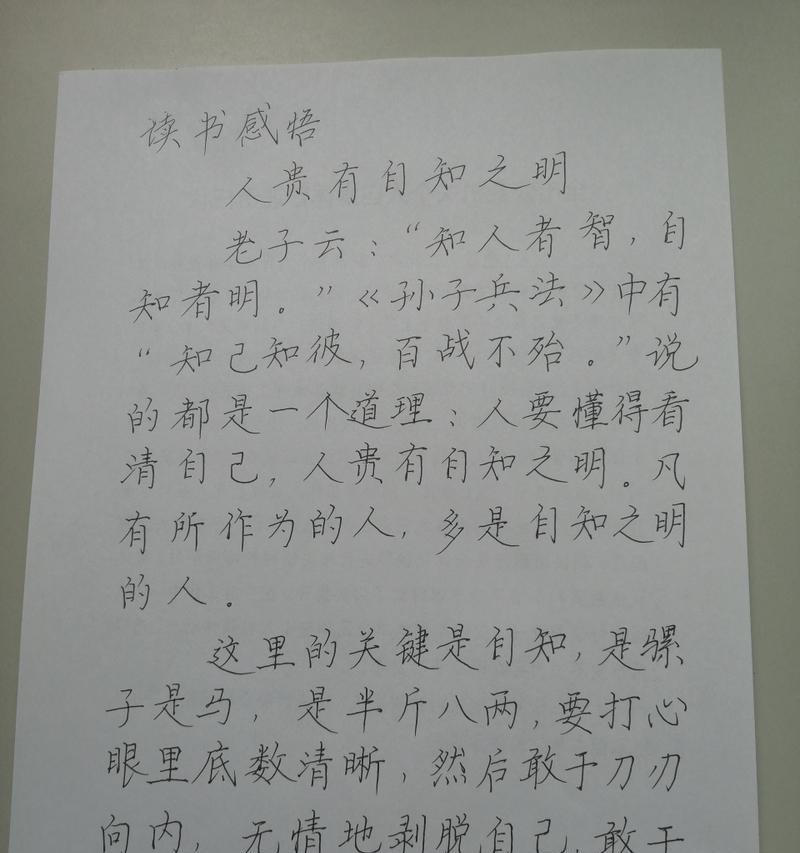 读书感悟
人贵有自知之明
老子云：“知人者智，自
知者明。”《孙子兵法》中有
“知己知彼，百战不殆。”说
的都是一个道理：人要懂得看
清自己，人贵有自知之明。凡
有所作为的人，多是自知之明
的人。
这里的关键是自知，是骡
子是马，是半斤八两，要打心
眼里底数清晰，然后敢于刀刃
向内，无情地剥脱自己，敢于